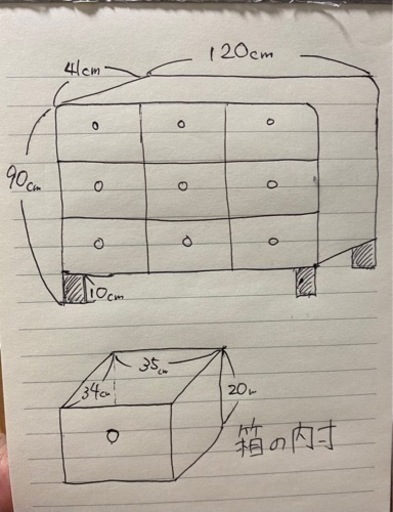 120cm
41cm
90cm
10cm
35cm
34cm
20cm
箱の内寸